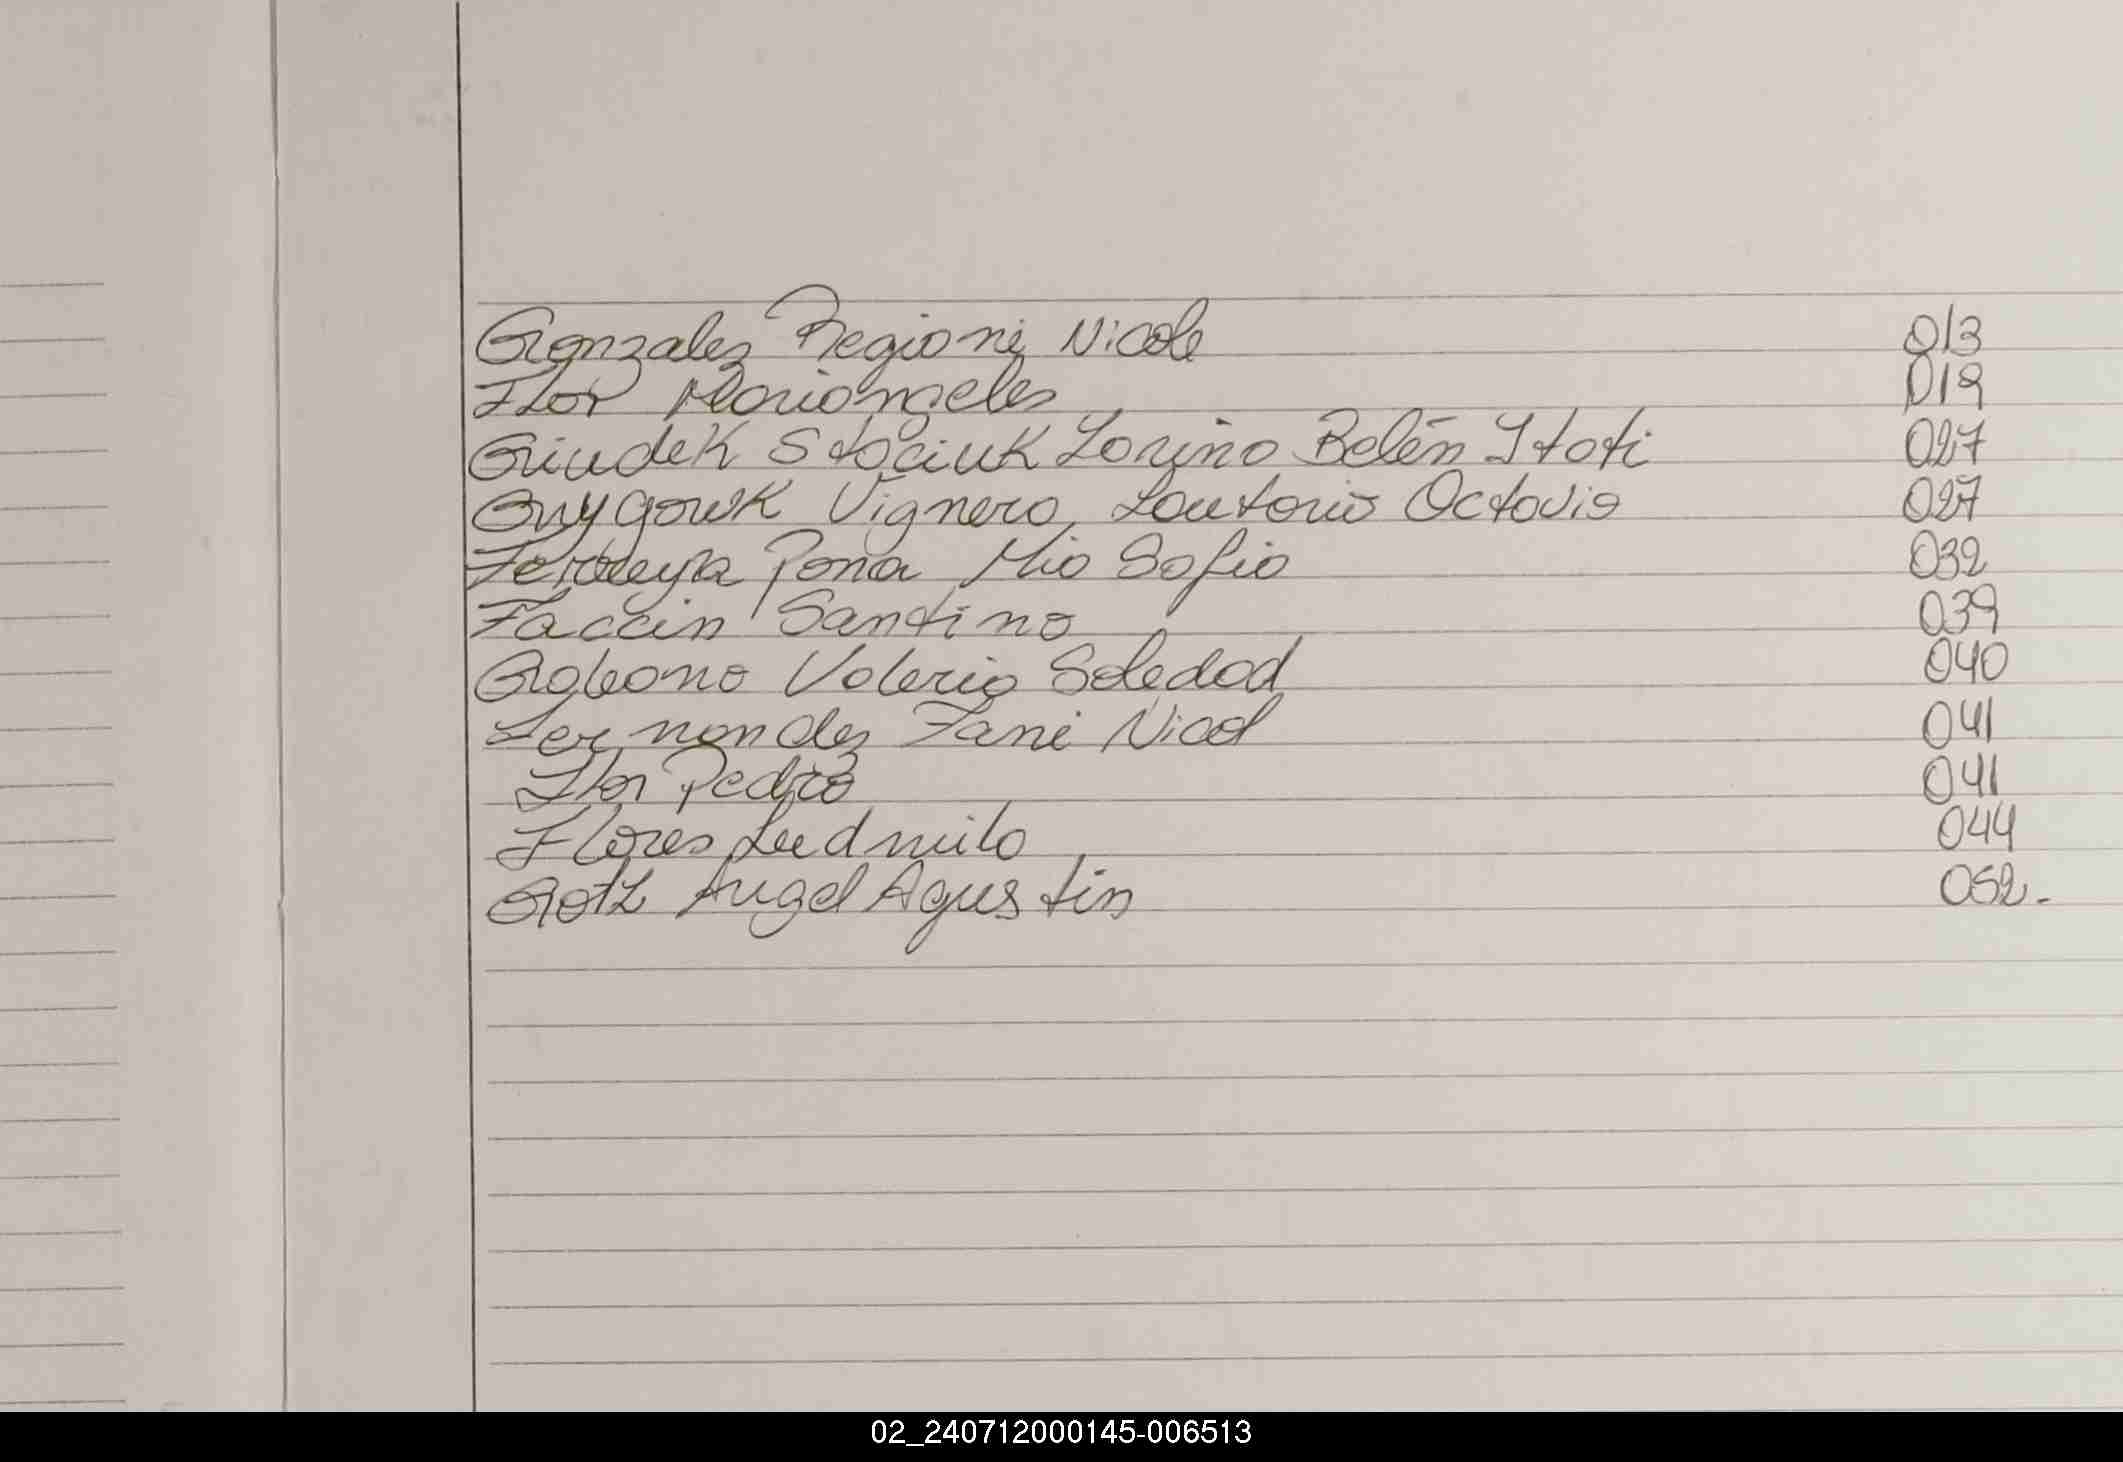 Gonzalez Regioni Nicole 013
Flor Mariangeles 019
Giudek Stociuk Lorina Belén Itati 027
Vignero Lautorio Octavia 027
Ferreyra Pona Mia Sofia 032
Faccin Santino 039
Galeano Valeria Soledad 040
Fernandez Fani Nicol 041
Flor Pedro 041
Flores Ludmila 044
Gotz Angel Agustin 052.
02_240712000145-006513